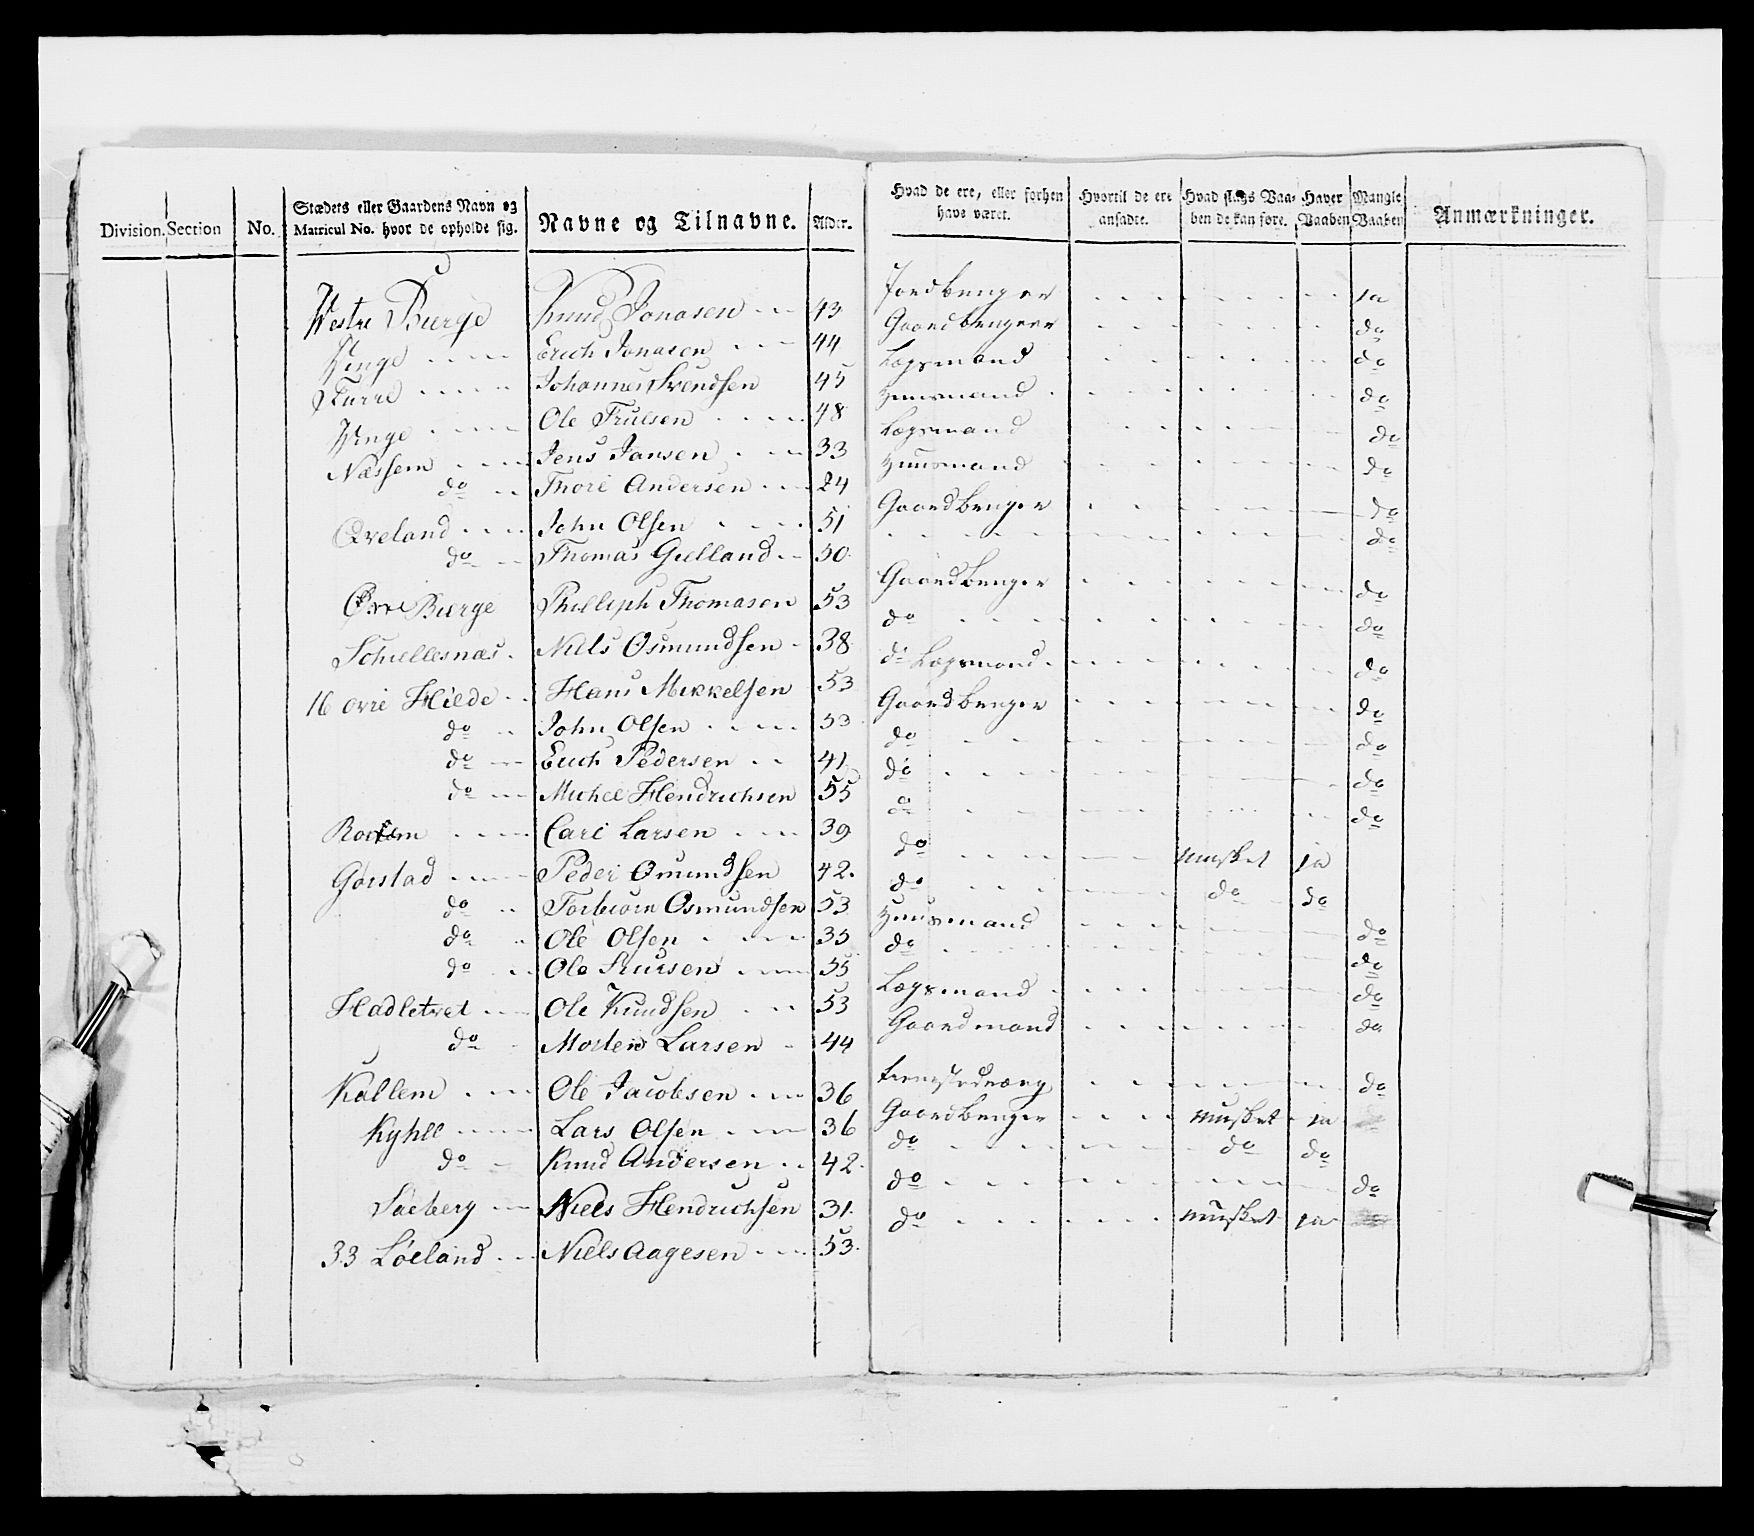 Division. Section No. Stædets eller Gaardens Navn og Matricul No. hvor de opholde sig. Navne og Tilnavne. Alder. Hvad de ere, eller forhen have været. Hvortil de ere ansadte. Hvad slags Vaaben de kan føre. Haver Vaaben Mangle Vaaben Anmærkninger.
Westre Bierge Knud Jonasen 43 Jordbruger ja
Winge Erich Jonasen 44 Gaardbruger do
Johannes Svendsen 45 Lægsmand do
Winge Ole Trulsen 48 Huusmand do
Næssem Jens Jansen 33 Lægsmand do
do Thore Andersen 24 Huusmand do
Qveland John Olsen 51 Gaardbruger do
do Thomas Gielland 50 do
Øvre Bierge Phillip Thomasen 53 Gaardbruger do
Schiellesnæs Niels Osmundsen 38 do do
16 øvre Hilde Hans Mikkelsen 53 do Lægsmand do
do John Olsen 53 Gaardbruger do
do Erich Pedersen 41 do do
do Michel Hendrichsen 55 do do
Carl Larsen 39 do do
Gorstad Peder Omundsen 42 do musket ja
do Torbiørn Osmundsen 53 do do do
do Ole Olsen 35 Huusmand do
do Ole 55 do do
Hadletvet Ole Knudsen 53 Lægsmand do
do Morten Larsen 44 Gaardmand do
Kallem Ole Jacobsen 36 do
Kyhll Lars Olsen 36 Gaardbruger musket ja
do Knud Andersen 42 do do do
Søeberg Niels Hendrichsen 31 do do
33 Løeland Niels Aagesen 53 do musket ja